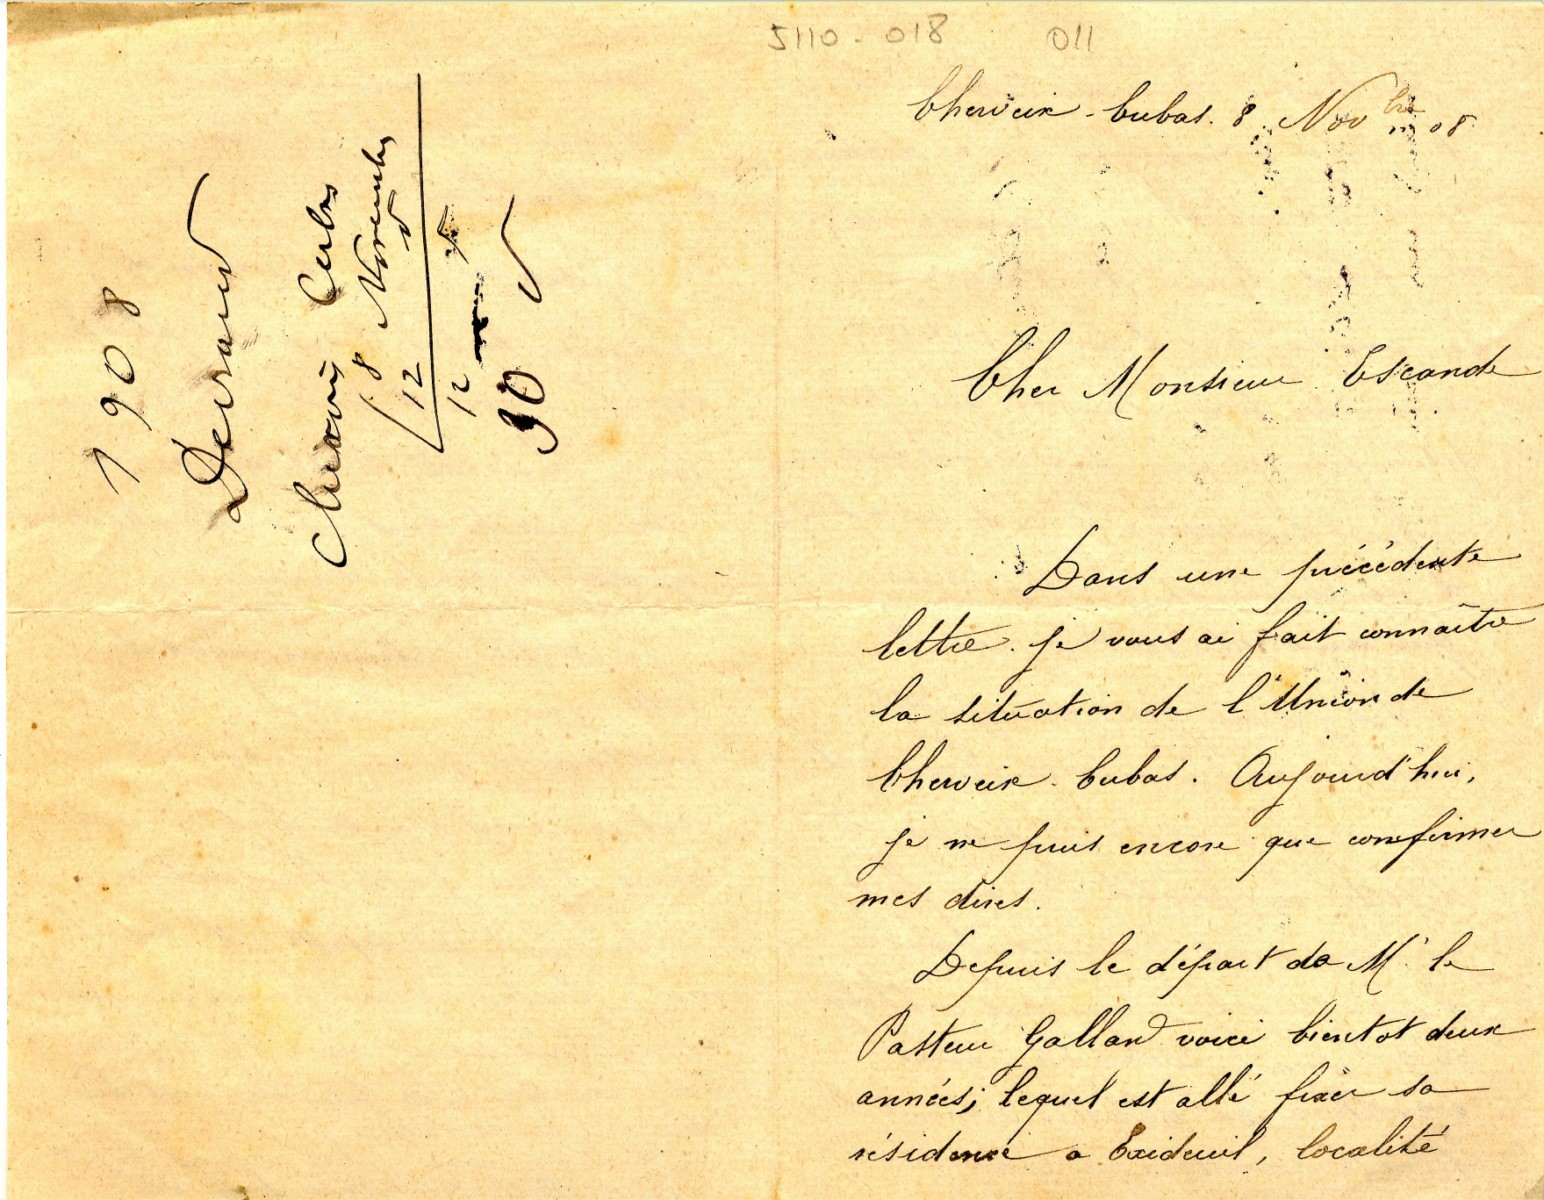 5110-018 011
1908
Cherveix Cubas
8 Novembre
12
12
90
Cherveix-Cubas. 8 Novbre 08
Cher Monsieur Escande
Dans une précédente
lettre. je vous ai fait connaître
la situation de l'Union de
Cherveix-Cubas. Aujourd'hui,
je ne puis encore que confirmer
mes dires.
Depuis le départ de Mr le
Pasteur Galland voici bientot deux
années; lequel est allé fixer sa
résidence a Exideuil, localité